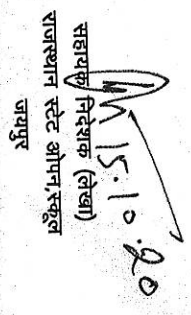 15.10.20
सहायक निदेशक (लेखा)
राजस्थान स्टेट ओपन स्कूल
जयपुर